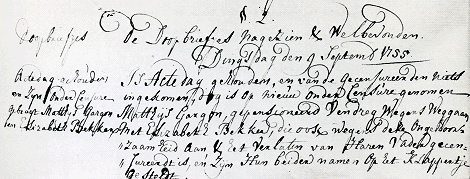 §. 2.
Doopbriefjes
De Doopbriefjes nagezien & Welbevonden.
Dingsdag den 9 Septemb 1755
Actedag gehouden
en Zyn onder Censure
gelegt Matthys Gargon
en Elizabeth Bekker
Is Actedag gehouden, en van de gecensureerden niets
ingekomen, dog is op nieuw onder Censure genomen
Matthys Gargon, gepensioneerd Vendrig Wegens Weggaan
met Elizabeth Bekker, die ook Wegens deze Ongeboon-
zaamheid aan & het verlaten van Haren Vader gecen-
sureerdt is, en Zyn Hun beider namen op het Klappentje
gestelt.